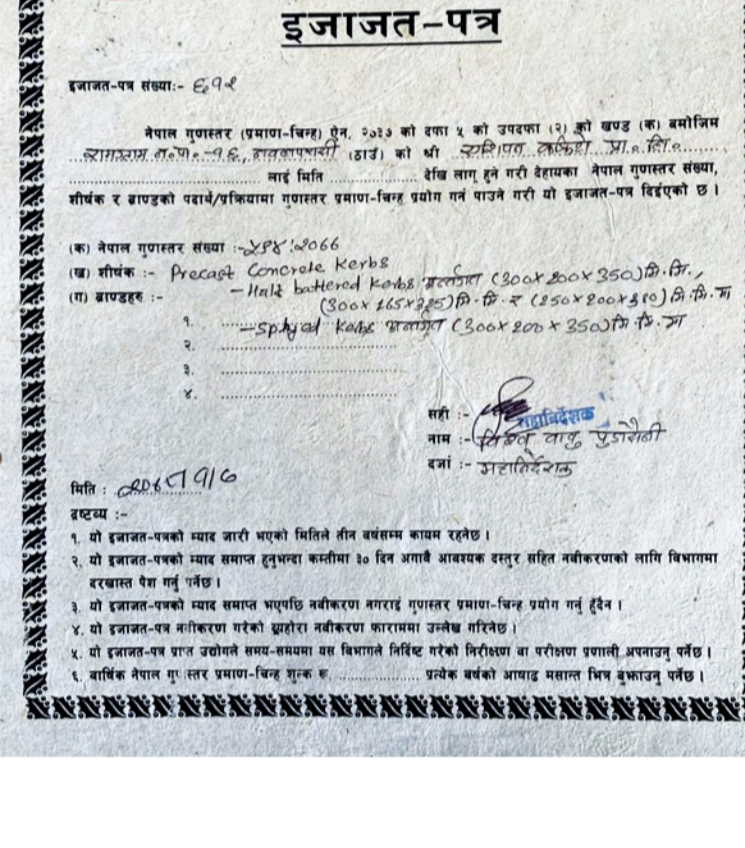 इजाजत-पत्र
इजाजत-पत्र संख्या:- ६१२
नेपाल गुणस्तर (प्रमाण-चिन्ह) ऐन, २०३७ को दफा ५ को उपदफा (२) को खण्ड (क) बमोजिम
न.पा.-१६, (ठाउँ) को श्री प्रा. लि.
लाई मिति .................... देखि लागू हुने गरी देहायका नेपाल गुणस्तर संख्या,
शीर्षक र ब्राण्डको पदार्थ/प्रक्रियामा गुणस्तर प्रमाण-चिन्ह प्रयोग गर्न पाउने गरी यो इजाजत-पत्र दिईएको छ ।
(क) नेपाल गुणस्तर संख्या :- :2066
(ख) शीर्षक :- Precast Concrete Kerbs
(ग) ब्राण्डहरु :- - Half battered Kerbs अन्तर्गत (300x200x350) मि.मि.,
(300x165x325) मि.मि. र (250x200x380) मि.मि. मा
१. - Kerbs अन्तर्गत (300x200x350) मि.मि. मा
२. ....................
३. ....................
४. ....................
सही :- महानिर्देशक
नाम :- विश्व बाबु पुडासैनी
दर्जा :- महानिर्देशक
मिति :
द्रष्टव्य :-
१. यो इजाजत-पत्रको म्याद जारी भएको मितिले तीन वर्षसम्म कायम रहनेछ ।
२. यो इजाजत-पत्रको म्याद समाप्त हुनुभन्दा कम्तीमा ३० दिन अगावै आवश्यक दस्तुर सहित नवीकरणको लागि विभागमा
दरखास्त पेश गर्नु पर्नेछ ।
३. यो इजाजत-पत्रको म्याद समाप्त भएपछि नवीकरण नगराई गुणस्तर प्रमाण-चिन्ह प्रयोग गर्नु हुँदैन ।
४. यो इजाजत-पत्र नवीकरण गरेको व्यहोरा नवीकरण फाराममा उल्लेख गरिनेछ ।
५. यो इजाजत-पत्र प्राप्त उद्योगले समय-समयमा यस विभागले निर्दिष्ट गरेको निरीक्षण वा परीक्षण प्रणाली अपनाउनु पर्नेछ ।
६. वार्षिक नेपाल गुणस्तर प्रमाण-चिन्ह शुल्क रू. .................... प्रत्येक वर्षको आषाढ मसान्त भित्र बुझाउनु पर्नेछ ।